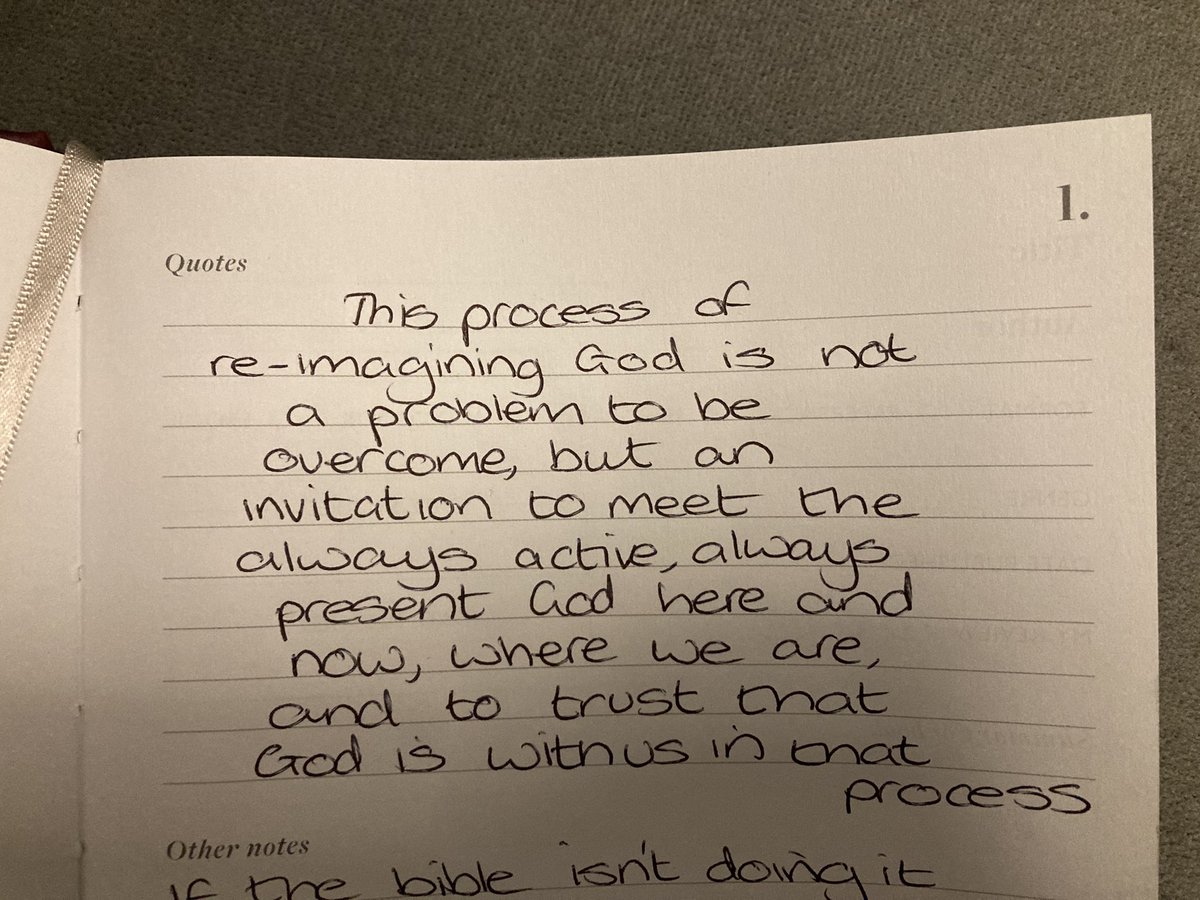 1.
Quotes
This process of
re-imagining God is not
a problem to be
overcome, but an
invitation to meet the
always active, always
present God here and
now, where we are,
and to trust that
God is with us in that
process
Other notes
If the bible isn't doing it